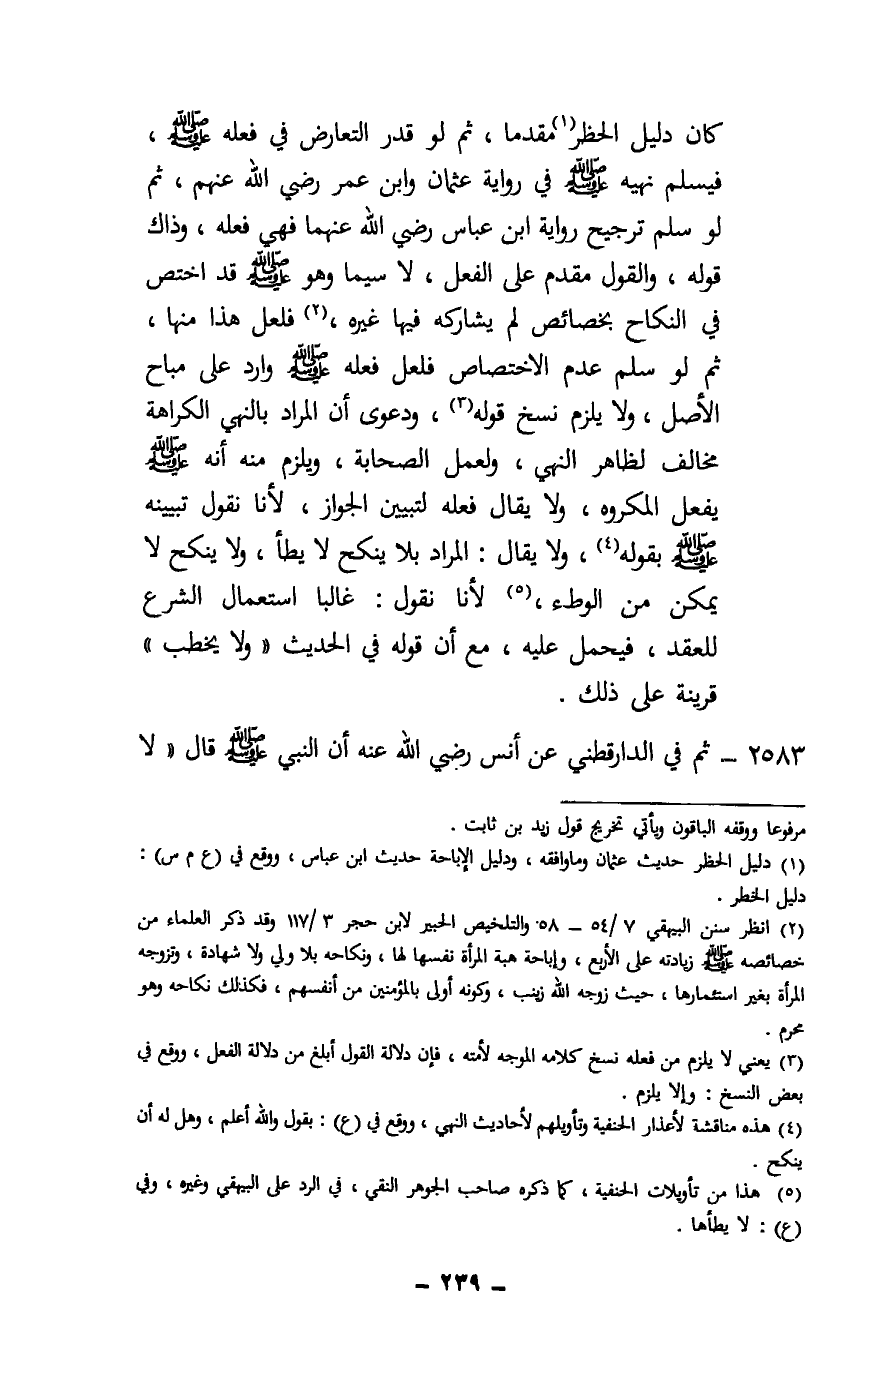 كان دليل الحظر(١) مقدما ، ثم لو قدر التعارض في فعله ﷺ ،
فيسلم نهيه ﷺ في رواية عثمان وابن عمر رضي الله عنهم ، ثم
لو سلم ترجيح رواية ابن عباس رضي الله عنهما فهي فعله ، وذاك
قوله ، والقول مقدم على الفعل ، لا سيما وهو ﷺ قد اختص
في النكاح بخصائص لم يشاركه فيها غيره ،(٢) فلعل هذا منها ،
ثم لو سلم عدم الاختصاص فلعل فعله ﷺ وارد على مباح
الأصل ، ولا يلزم نسخ قوله(٣) ، ودعوى أن المراد بالنهي الكراهة
مخالف لظاهر النهي ، ولعمل الصحابة ، ويلزم منه أنه ﷺ
يفعل المكروه ، ولا يقال فعله لتبيين الجواز ، لأنا نقول تبيينه
ﷺ بقوله(٤) ، ولا يقال : المراد بلا ينكح لا يطأ ، ولا ينكح لا
يمكن من الوطء ،(٥) لأنا نقول : غالبا استعمال الشرع
للعقد ، فيحمل عليه ، مع أن قوله في الحديث « ولا يخطب »
قرينة على ذلك .
٢٥٨٣ ــ ثم في الدارقطني عن أنس رضي الله عنه أن النبي ﷺ قال « لا
مرفوعا ووقفه الباقون ويأتي تخريج قول زيد بن ثابت .
(١) دليل الحظر حديث عثمان وماوافقه ، ودليل الإباحة حديث ابن عباس ، ووقع في (ع م س) :
دليل الخطر .
(٢) انظر سنن البيهقي ٧ /٥٤ ــ ٥٨ والتلخيص الحبير لابن حجر ٣ /١١٧ وقد ذكر العلماء من
خصائصه ﷺ زيادته على الأربع ، وإباحة هبة المرأة نفسها لها ، ونكاحه بلا ولي ولا شهادة ، وتزوجه
المرأة بغير استئمارها ، حيث زوجه الله زينب ، وكونه أولى بالمؤمنين من أنفسهم ، فكذلك نكاحه وهو
محرم .
(٣) يعني لا يلزم من فعله نسخ كلامه الموجه لأمته ، فإن دلالة القول أبلغ من دلالة الفعل ، ووقع في
بعض النسخ : وإلا يلزم .
(٤) هذه مناقشة لأعذار الحنفية وتأويلهم لأحاديث النهي ، ووقع في (ع) : بقول والله أعلم ، وهل له أن
ينكح .
(٥) هذا من تأويلات الحنفية ، كما ذكره صاحب الجوهر النقي ، في الرد على البيهقي وغيره ، وفي
(ع) : لا يطأها .
ــ ٢٣٩ ــ